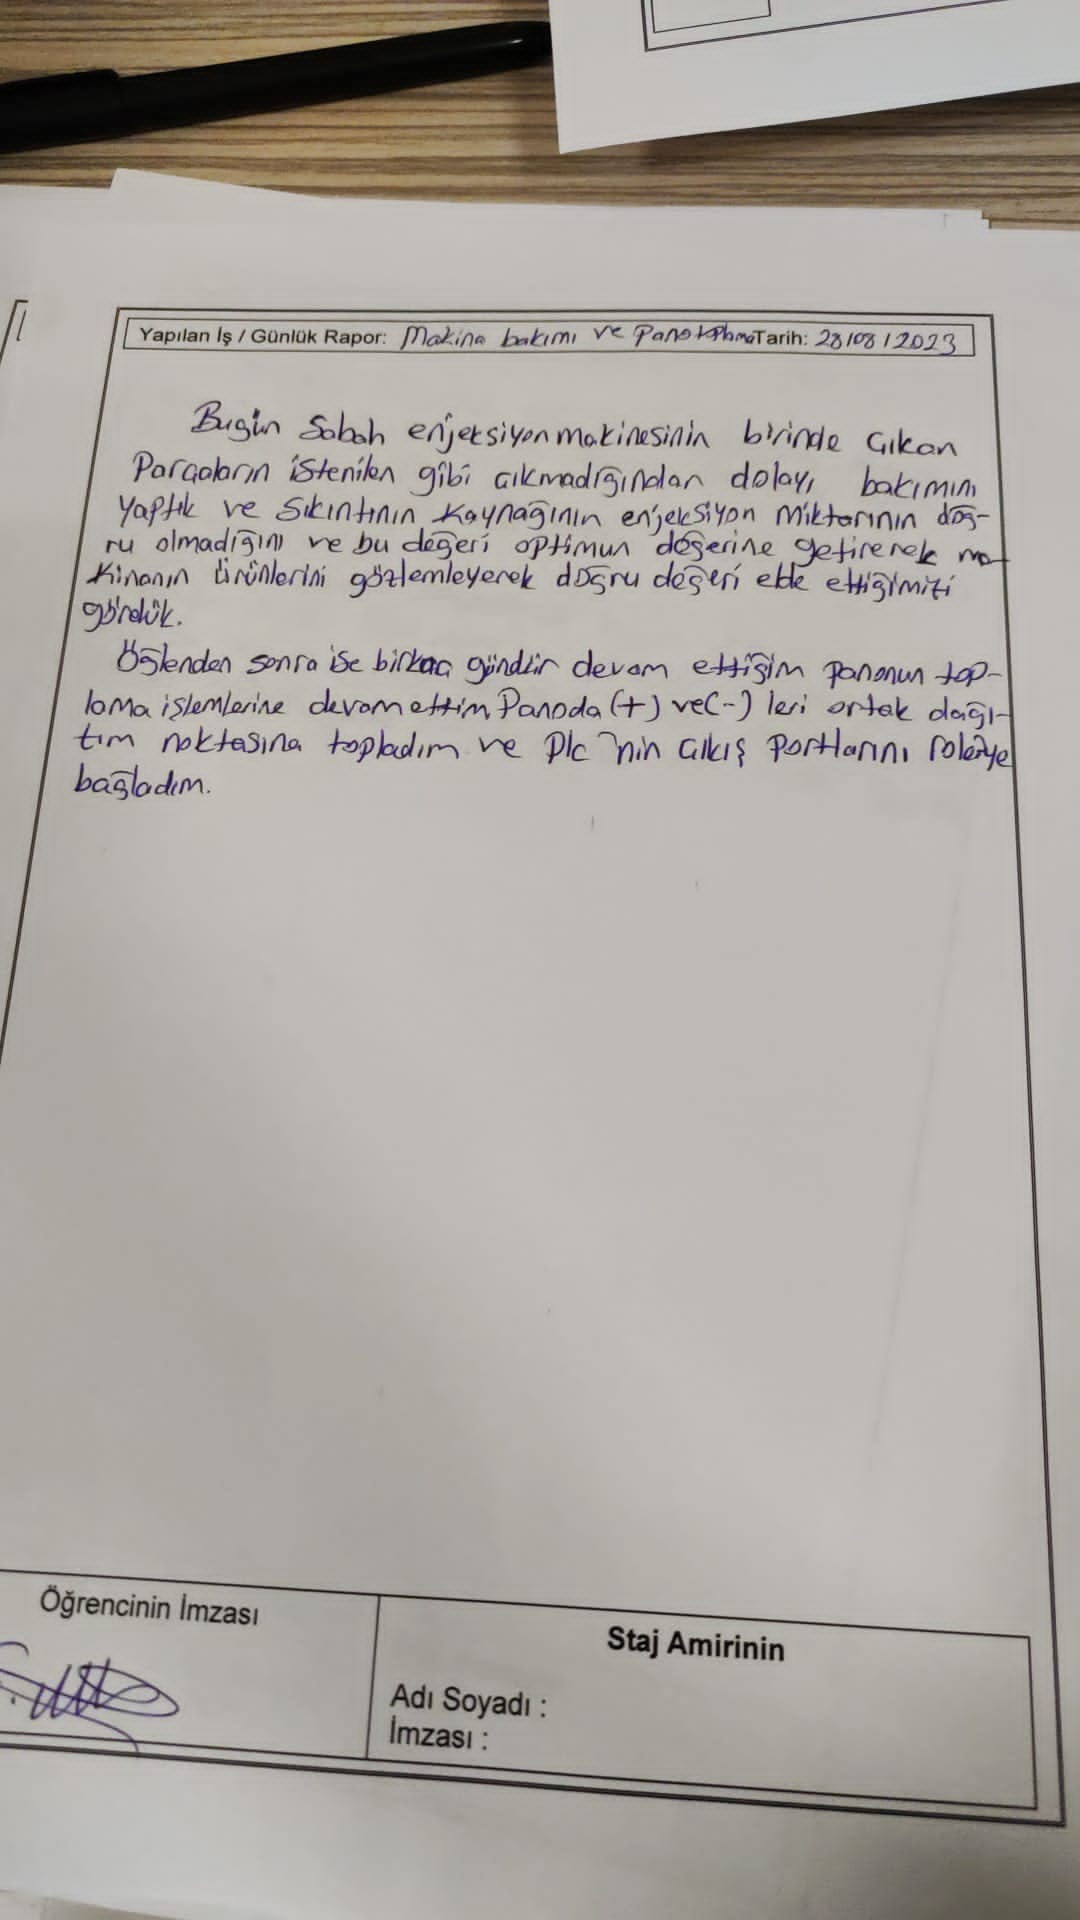 Yapılan İş / Günlük Rapor: Makina bakımı ve Pano toplama Tarih: 28/08/2023
Bugün Sabah enjeksiyon makinesinin birinde Çıkan
Parçaların istenilen gibi çıkmadığından dolayı bakımını
Yaptık ve Sıkıntının Kaynağının enjeksiyon Miktarının doğ-
ru olmadığını ve bu değeri optimun değerine getirerek ma-
kinanın ürünlerini gözlemleyerek doğru değeri elde ettiğimizi
gördük.
Öğlenden sonra ise birkaç gündür devam ettiğim panonun top-
lama işlemlerine devam ettim Panoda (+) ve (-) leri ortak dağı-
tım noktasına topladım ve Plc 'nin Çıkış Portlarını röleye
bağladım.
Öğrencinin İmzası
Staj Amirinin
Adı Soyadı :
İmzası :